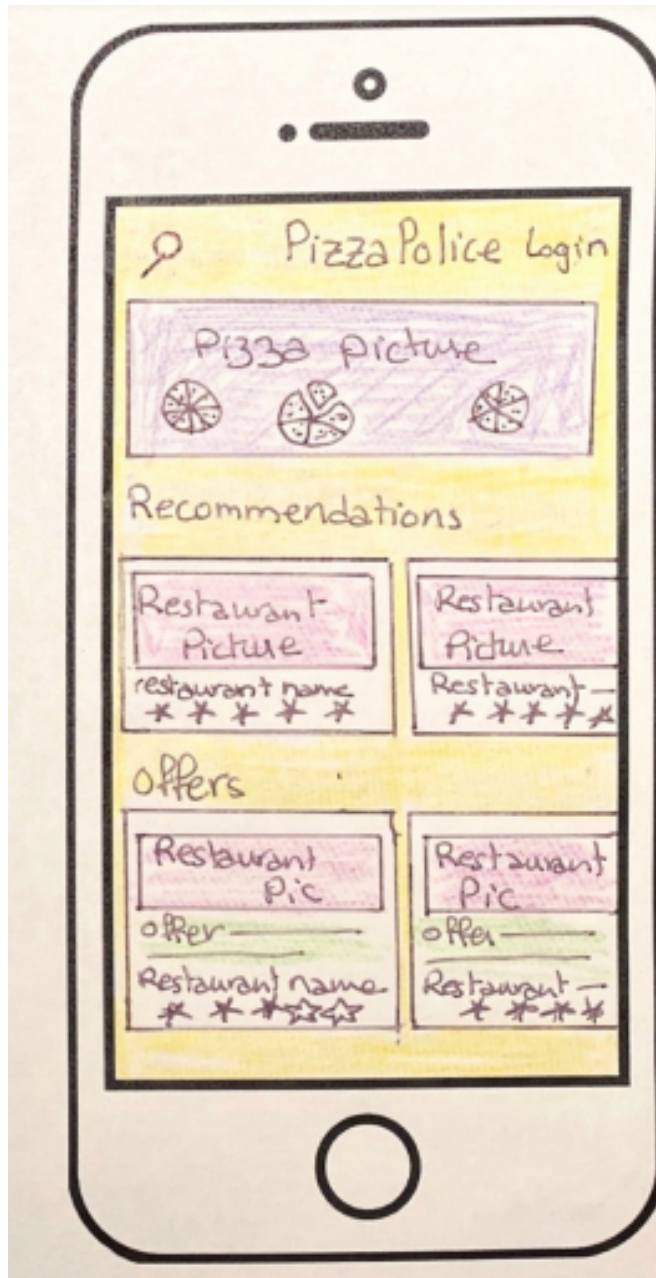 PizzaPolice Login
Pizza picture
Recommendations
Restaurant Picture
restaurant name
Restaurant Picture
Restaurant
Offers
Restaurant Pic
offer
Restaurant name
Restaurant Pic
offer
Restaurant